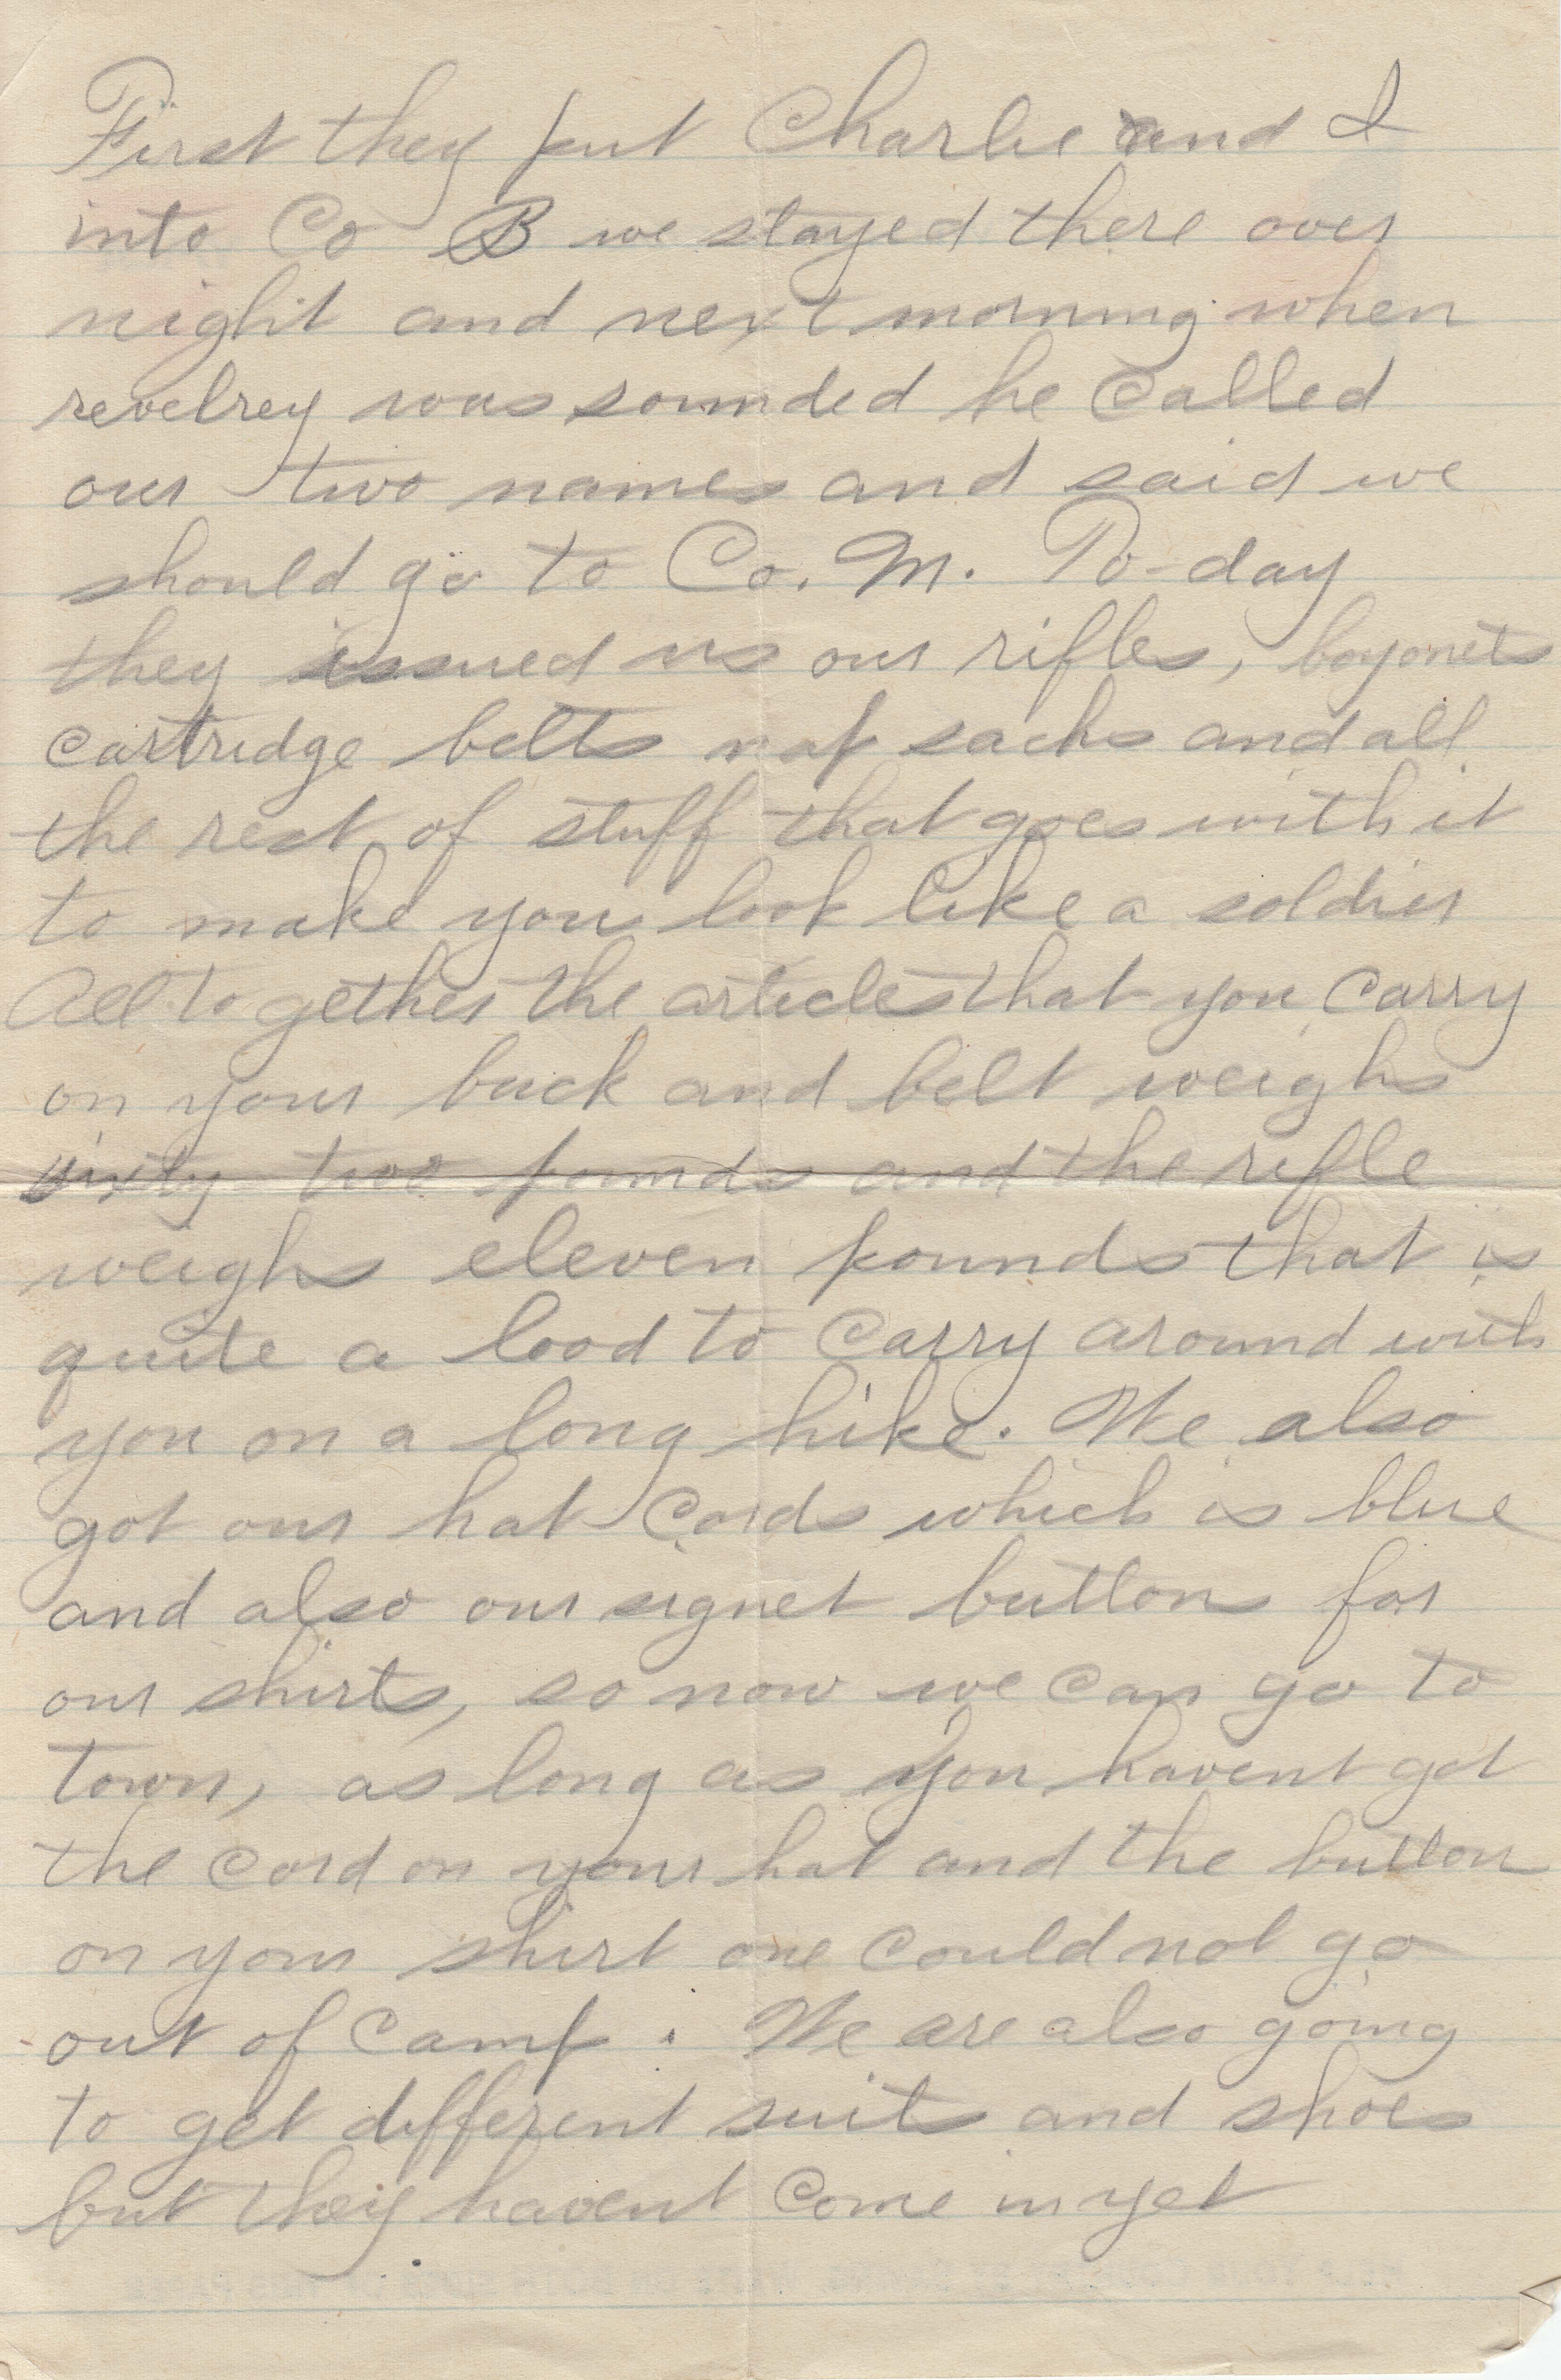 First they put Charlie and I
into Co B we stayed there over
night and next morning when
revelrey was sounded he called
our two names and said we
should go to Co. M. To-day
they issued us our rifles, bayonets
cartridge belts nap sacks and all
the rest of stuff that goes with it
to make you look like a soldier
All to gether the articles that you carry
on your back and belt weighs
sixty two pounds and the rifle
weighs eleven pounds that is
quite a load to carry around with
you on a long hike. We also
got our hat cords which is blue
and also our signet buttons for
our shirts, so now we can go to
town, as long as you havent got
the cord on your hat and the button
on your shirt one could not go
out of camp. We are also going
to get different suits and shoes
but they havent come in yet